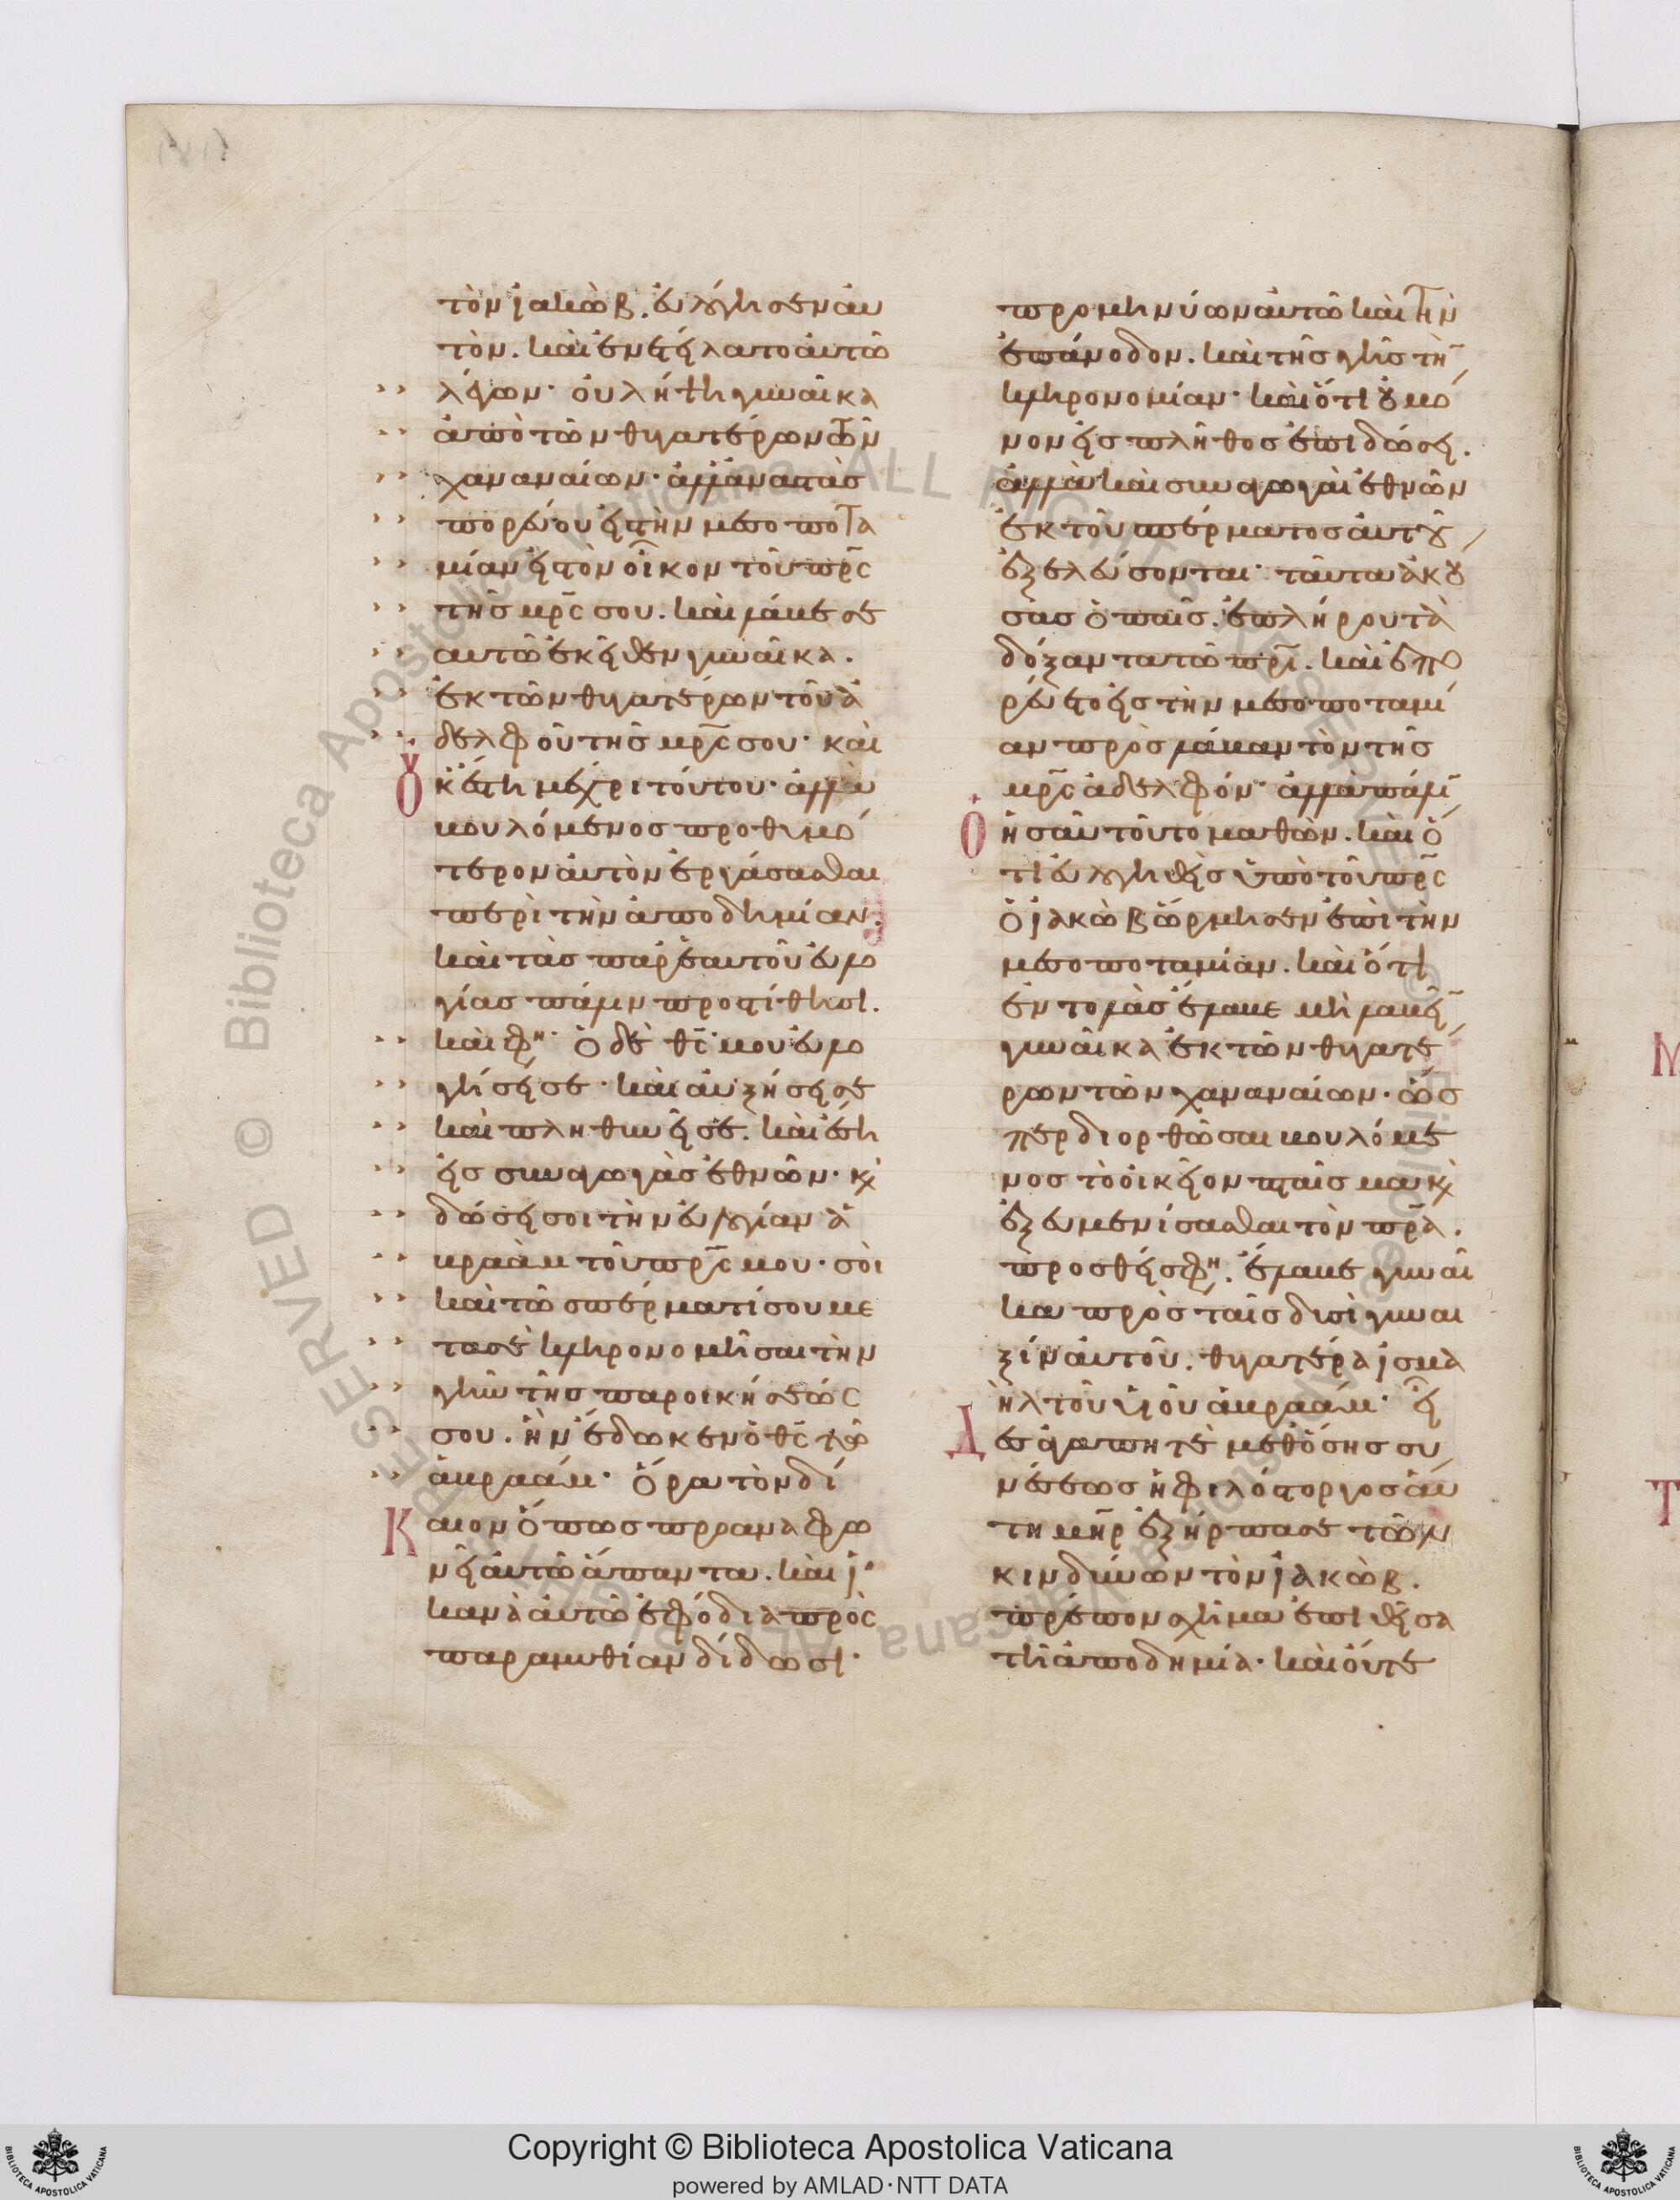 τὸν ϊακὼβ. εὐλόγησεν αυ
τὸν. καὶ ἐνετείλατο αὐτῶ
λέγων· οὐ λήψη γυναῖκα
ἀπὸ τῶν θυγατέρων τῶν
χαναναίων· ἀλλ' ἀναστὰσ
πορεύου εἰς τὴν μεσοποτα
μίαν εἰς τὸν οἶκον τοῦ πρ̅ς
τῆσ μρ̅ς σου. καὶ λάβε σε
αυτῶ ἐκεῖθεν γυναῖκα.
ἐκ τῶν θυγατέρων τοῦ ἀ
δελφοῦ τῆσ μρ̅ς σου· καὶ
οὐκ ἔστη μέχρι τούτου· ἀλλὰ
βουλόμενοσ προθυμό
τερον αὐτὸν ἐργάσασθαι
περὶ τὴν ἀποδημίαν.
καὶ τὰσ παρ' ἑαυτοῦ εὐλο
γίασ πάλιν προστίθησι.
καὶ φη· ὁ δὲ θ̅ς μου εὐλο
γήσει σε· καὶ αὐξήσει σε
καὶ πληθυνεῖ σε. καὶ ἔση
εἰσ συναγωγὰσ ἐθνῶν· κ̀
δώσει σοι τὴν εὐλογίαν ἀ
βραὰμ τοῦ πρ̅ς μου· σὸι
καὶ τῶ σπέρματί σου με
τὰ σὲ κληρονομῆσαι τὴν
γῆν τῆσ παροικήσεώς
σου. ἣν ἔδωκεν ὁ θ̅ς τῶ
ἀβραάμ· ὅρα τὸν δί
Καιον ὅπωσ προαναφω
νεῖ αὐτῶ ἅπαντα. καὶ ϊ
κανὰ αὐτῶ ἐφόδια πρὸς
παραμυθίαν δίδωσι·
προμηνύων αὐτῶ καὶ τὴν
ἐπάνοδον. καὶ τῆσ γῆσ τὴ̅
κληρονομίαν· καὶ ὅτι οὐ μό
νον εἰσ πλῆθοσ ἐπιδώσει.
ἀλλὰ καὶ συναγωγαὶ ἐθνῶν
ἐκ τοῦ σπέρματοσ αὐτοῦ
ἐξελεύσονται· ταῦτα ἀκού
σασ ὁ παῖσ. ἐπλήρου τὰ
δόξαντα τῶ πρ̅ι. καὶ ἐπο
ρεύετο εἰσ τὴν μεσοποταμί
αν πρὸσ λάβαν τὸν τῆσ
μρ̅ς ἀδελφόν· ἀλλὰ πάλι̅
Ὁ ἠσαῦ τοῦτο μαθὼν. καὶ ὅ
τι εὐλογηθεὶσ ὑπὸ τοῦ πρ̅ς
ὁ ϊακὼβ ὥρμησεν ἐπὶ τὴν
μεσοποταμίαν. καὶ ὅτι
ἐντολὰσ ἔλαβε μὴ λαβεῖ̅
γυναῖκα ἐκ τῶν θυγατέ
ρων τῶν χαναναίων· ὥσ
περ διορθῶσαι βουλόμε
νοσ τὸ οἰκεῖον πταῖσμα κ̀
ἐξευμενίσασθαι τὸν πρ̅α.
προσθεὶσ φη. ἔλαβε γυναῖ
κα πρὸσ ταῖσ δυσὶ γυναι
ξὶν αὐτοῦ. θυγατέρα ϊσμα
ὴλ τοῦ υἱοῦ ἀβραάμ· εἶ
Δεσ ἀγαπητὲ μεθ' ὅσησ συ
νέσεωσ ἡ φιλόστοργοσ αὕ
τη μη̅ρ ἐξήρπασε τῶν
κινδύνων τὸν ϊακὼβ.
πρέπον σχῆμα ἐπιθεῖσα
τῆ ἀποδημία· καὶ οὔτε